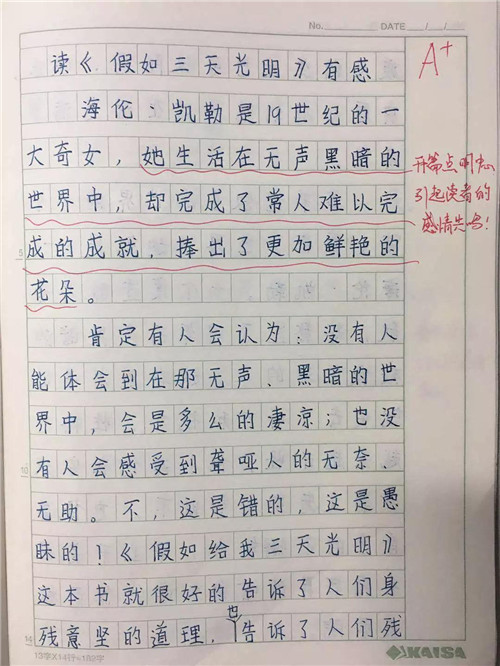 No. DATE / /
A+
读《假如三天光明》有感
海伦·凯勒是19世纪的一
大奇女，她生活在无声黑暗的
世界中，却完成了常人难以完
成的成就，捧出了更加鲜艳的
花朵。
肯定有人会认为：没有人
能体会到在那无声、黑暗的世
界中，会是多么的凄凉；也没
有人会感受到聋哑人的无奈、
无助。不，这是错的，这是愚
昧的！《假如给我三天光明》
这本书就很好的告诉了人们身
残意坚的道理，也告诉了人们残
开篇点明
引起读者的
感情
5
10
14
13字X14行=182字
KAISA